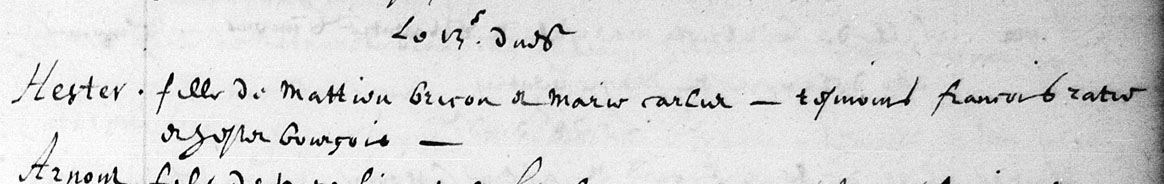 Le 13e. dudt
Hester . fille de Mattieu bricou et marie carlier — tesmoins francois ratie
et hester bourgois —
Arnout fils de